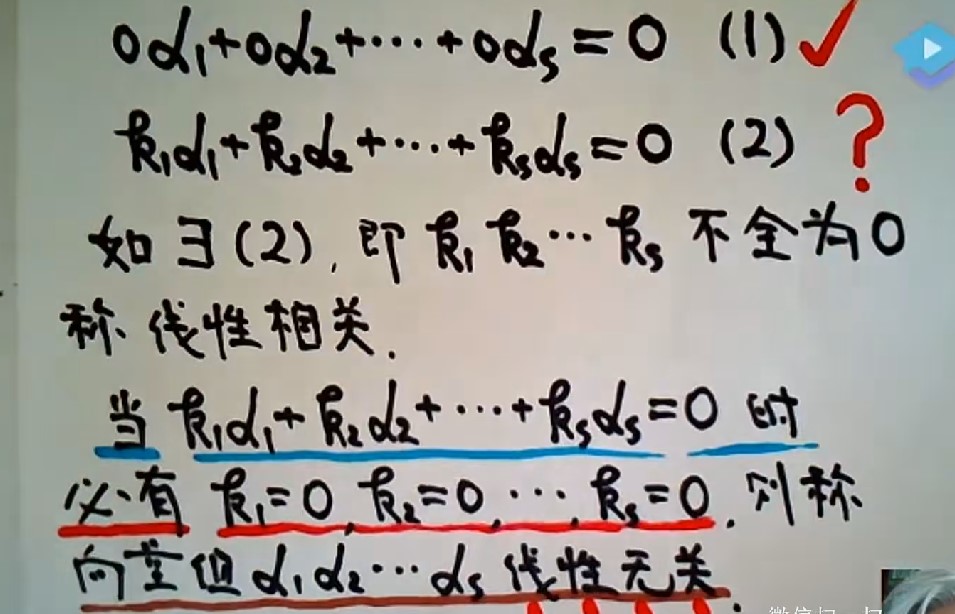 0α₁+0α₂+⋯+0αₛ=0 (1)✓
k₁α₁+k₂α₂+⋯+kₛαₛ=0 (2) ?
如∃(2),即 k₁ k₂⋯kₛ 不全为0
称线性相关.
当 k₁α₁+k₂α₂+⋯+kₛαₛ=0 时
必有 k₁=0,k₂=0,⋯,kₛ=0.则称
向量组α₁α₂⋯αₛ线性无关.
微信扫一扫